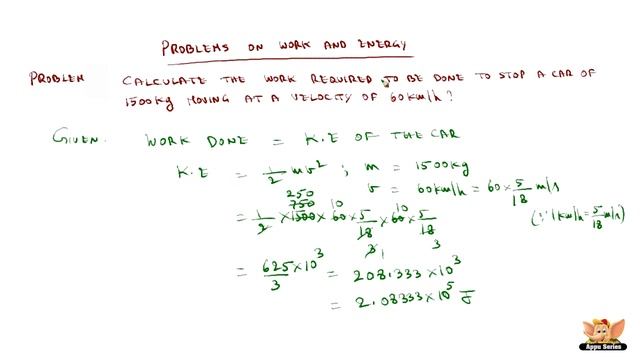 PROBLEMS ON WORK AND ENERGY
PROBLEM CALCULATE THE WORK REQUIRED TO BE DONE TO STOP A CAR OF
1500kg MOVING AT A VELOCITY OF 60km/h?
GIVEN. WORK DONE = K.E OF THE CAR
K.E = 1/2 mv² ; m = 1500kg
v = 60km/h = 60 × 5/18 m/s
(∵ 1km/h = 5/18 m/s)
250
750 10 10
= 1/2 × 1500 × 60 × 5/18 × 60 × 5/18
3 1 3
= 625/3 × 10³ = 208.333 × 10³
= 2.08333 × 10⁵ J
Appu Series